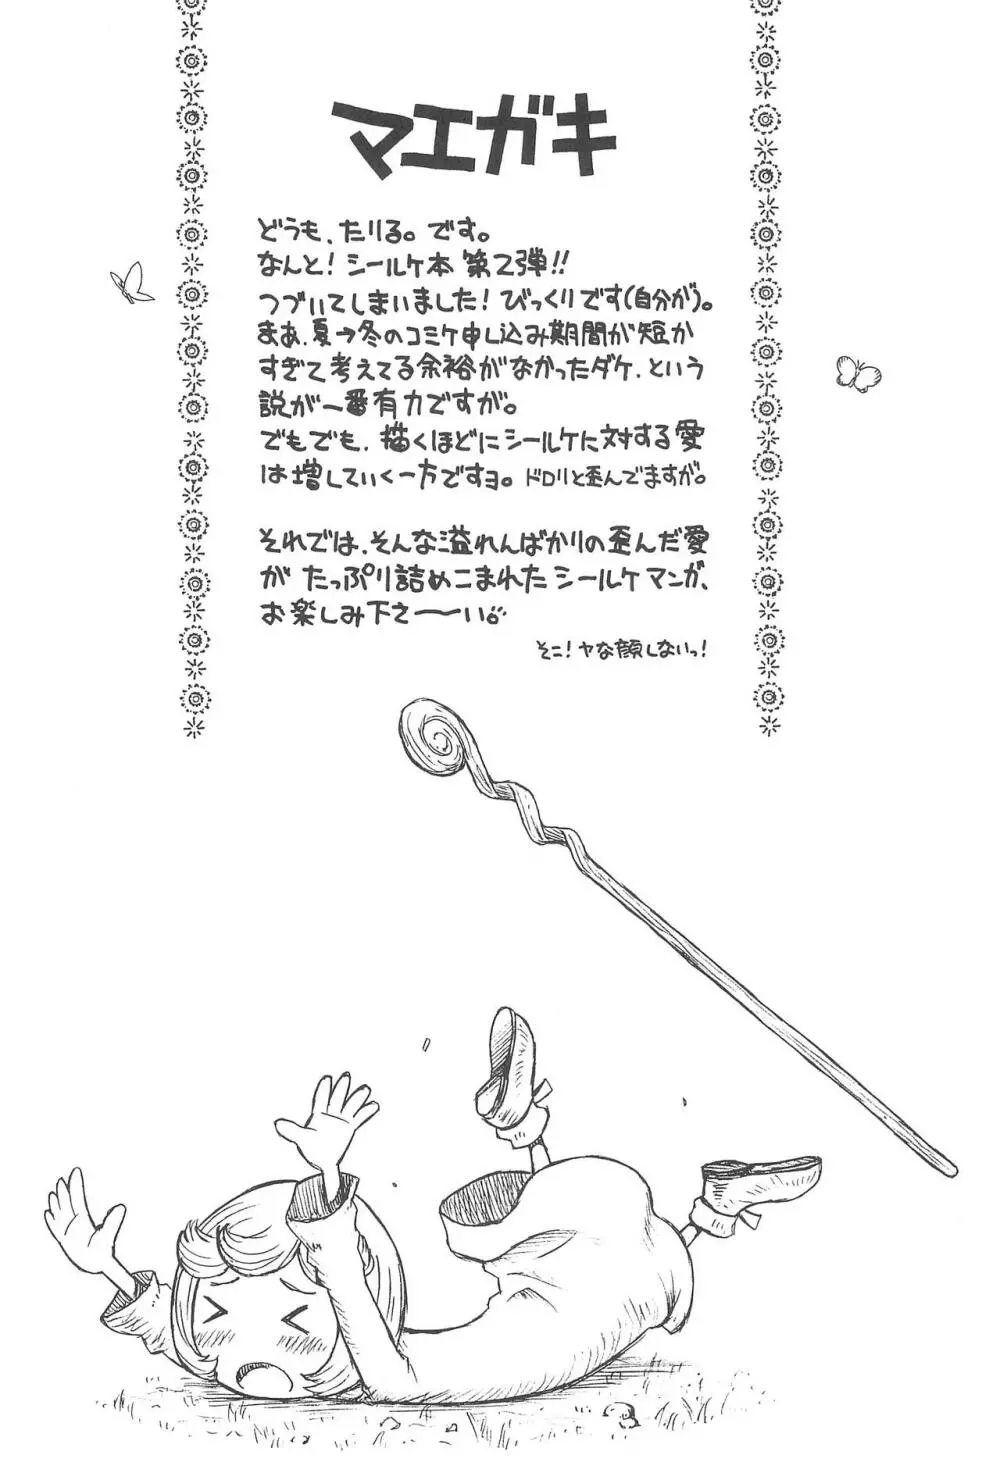 マエガキ
どうも、たりる。です。
なんと!シールケ本 第2弾!!
つづいてしまいました!びっくりです(自分が)。
まあ、夏→冬のコミケ申し込み期間が短か
すぎて考えてる余裕がなかったダケ、という
説が一番有力ですが。
でもでも、描くほどにシールケに対する愛
は増していく一方ですヨ。ドロリと歪んでますが。
それでは、そんな溢れんばかりの歪んだ愛
が たっぷり詰めこまれた シールケマンガ、
お楽しみ下さ〜〜い。
そこ!ヤな顔しないっ!